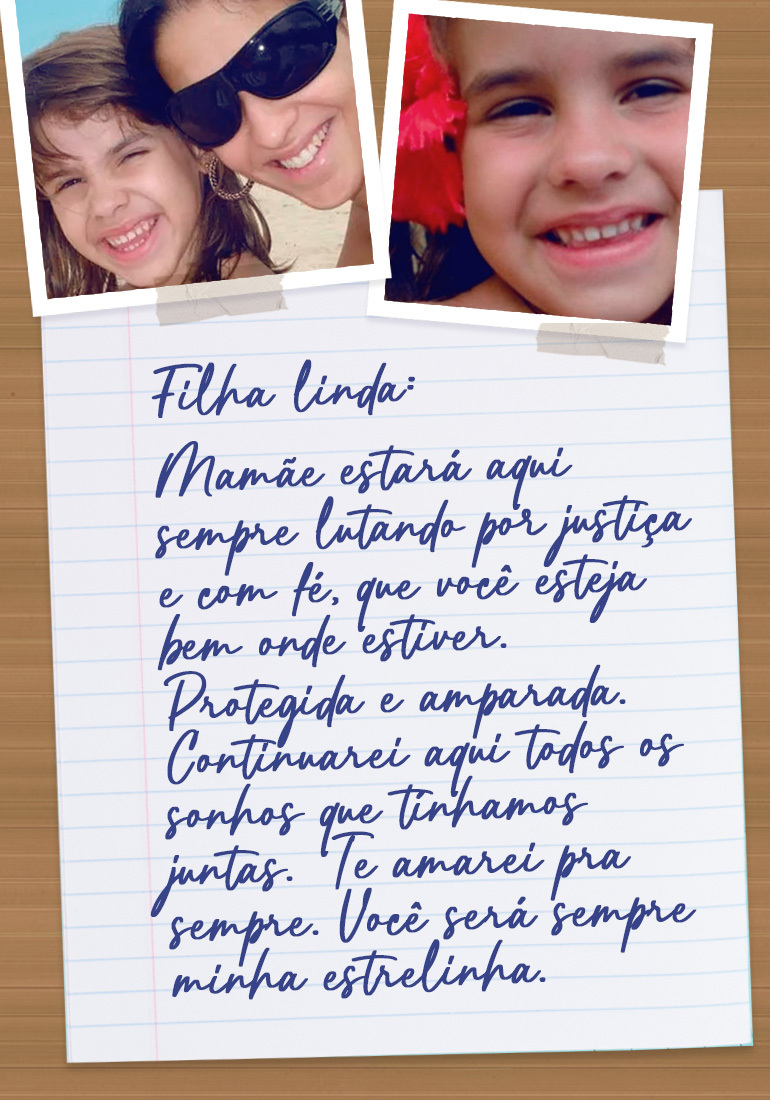 Filha linda:
Mamãe estará aqui
sempre lutando por justiça
e com fé, que você esteja
bem onde estiver.
Protegida e amparada.
Continuarei aqui todos os
sonhos que tínhamos
juntas. Te amarei pra
sempre. Você será sempre
minha estrelinha.